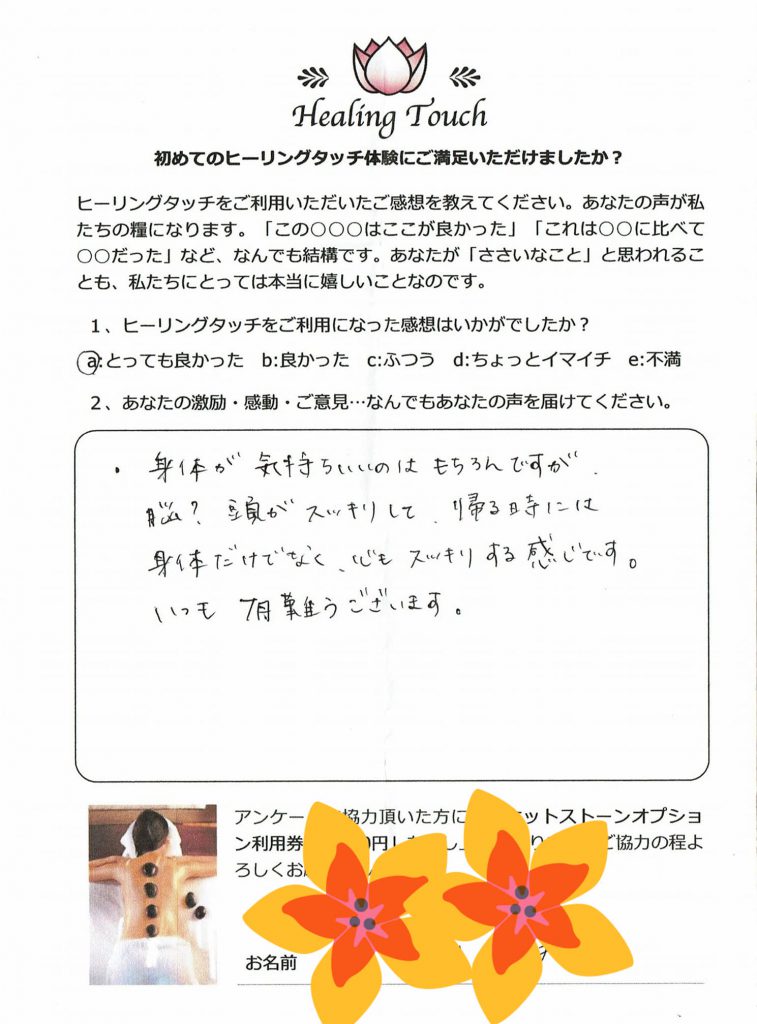 Healing Touch
初めてのヒーリングタッチ体験にご満足いただけましたか？
ヒーリングタッチをご利用いただいたご感想を教えてください。あなたの声が私
たちの糧になります。「この○○○はここが良かった」「これは○○に比べて
○○だった」など、なんでも結構です。あなたが「ささいなこと」と思われるこ
とも、私たちにとっては本当に嬉しいことなのです。
１、ヒーリングタッチをご利用になった感想はいかがでしたか？
a:とっても良かった b:良かった c:ふつう d:ちょっとイマイチ e:不満
２、あなたの激励・感動・ご意見…なんでもあなたの声を届けてください。
・身体が気持ちいいのはもちろんですが、
脳？頭がスッキリして、帰る時には
身体だけでなく、心もスッキリする感じです。
いつも有難うございます。
アンケー 協力頂いた方に ットストーンオプショ
ン利用券 円し ご協力の程よ
ろしくお
お名前